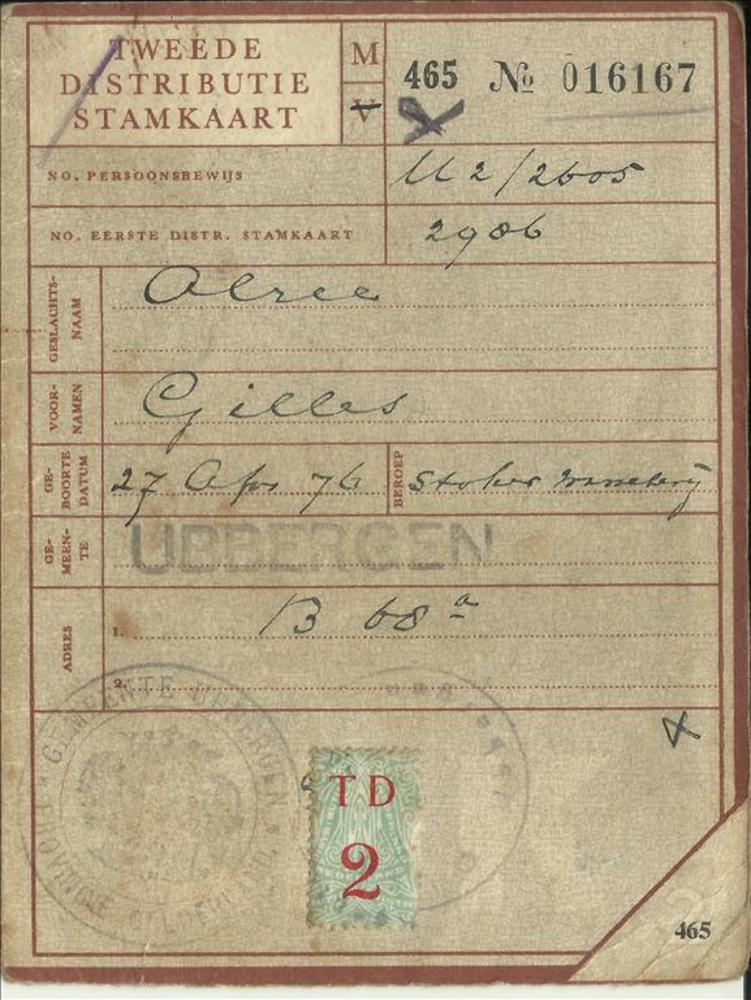 TWEEDE
DISTRIBUTIE
STAMKAART
M
V
465 № 016167
NO. PERSOONSBEWIJS
U 2/2605
NO. EERSTE DISTR. STAMKAART
2986
GESLACHTS-
NAAM
VOOR-
NAMEN
Gilles
GE-
BOORTE
DATUM
27 Apr 76
BEROEP
Stoker
GE-
MEEN-
TE
UBBERGEN
ADRES
1.
B 68 a
2.
GEMEENTE UBBERGEN
PROVINCIE GELDERLAND
TD
2
465